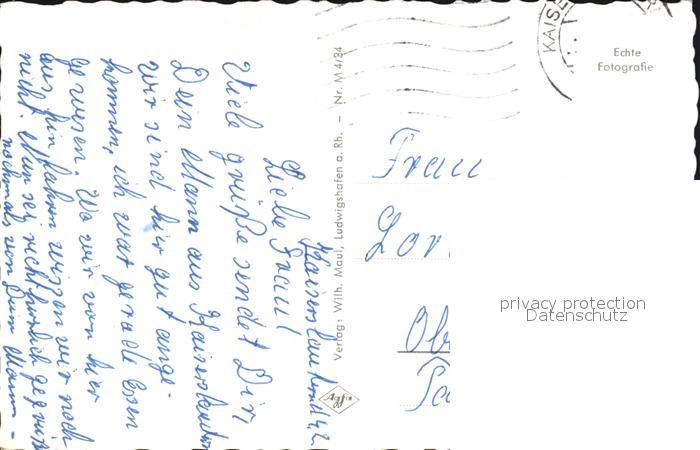 Kaiserslautern
Liebe Frau!
Viele grüße sendet Dir,
Dein Mann aus Kaiserslautern
wir sind hier gut ange-
kommen, ich war gerade Essen
gewesen. Wo wir von hier
aus hin fahren wissen wir noch
nicht. Nun sei recht herzlich gegrüßt
nochmals von Dein Mann -
Verlag: Wilh. Maul, Ludwigshafen a. Rh. – Nr. M 4/84
Agfa
KAISE
Echte
Fotografie
Frau
Lor
Ob
privacy protection
Datenschutz